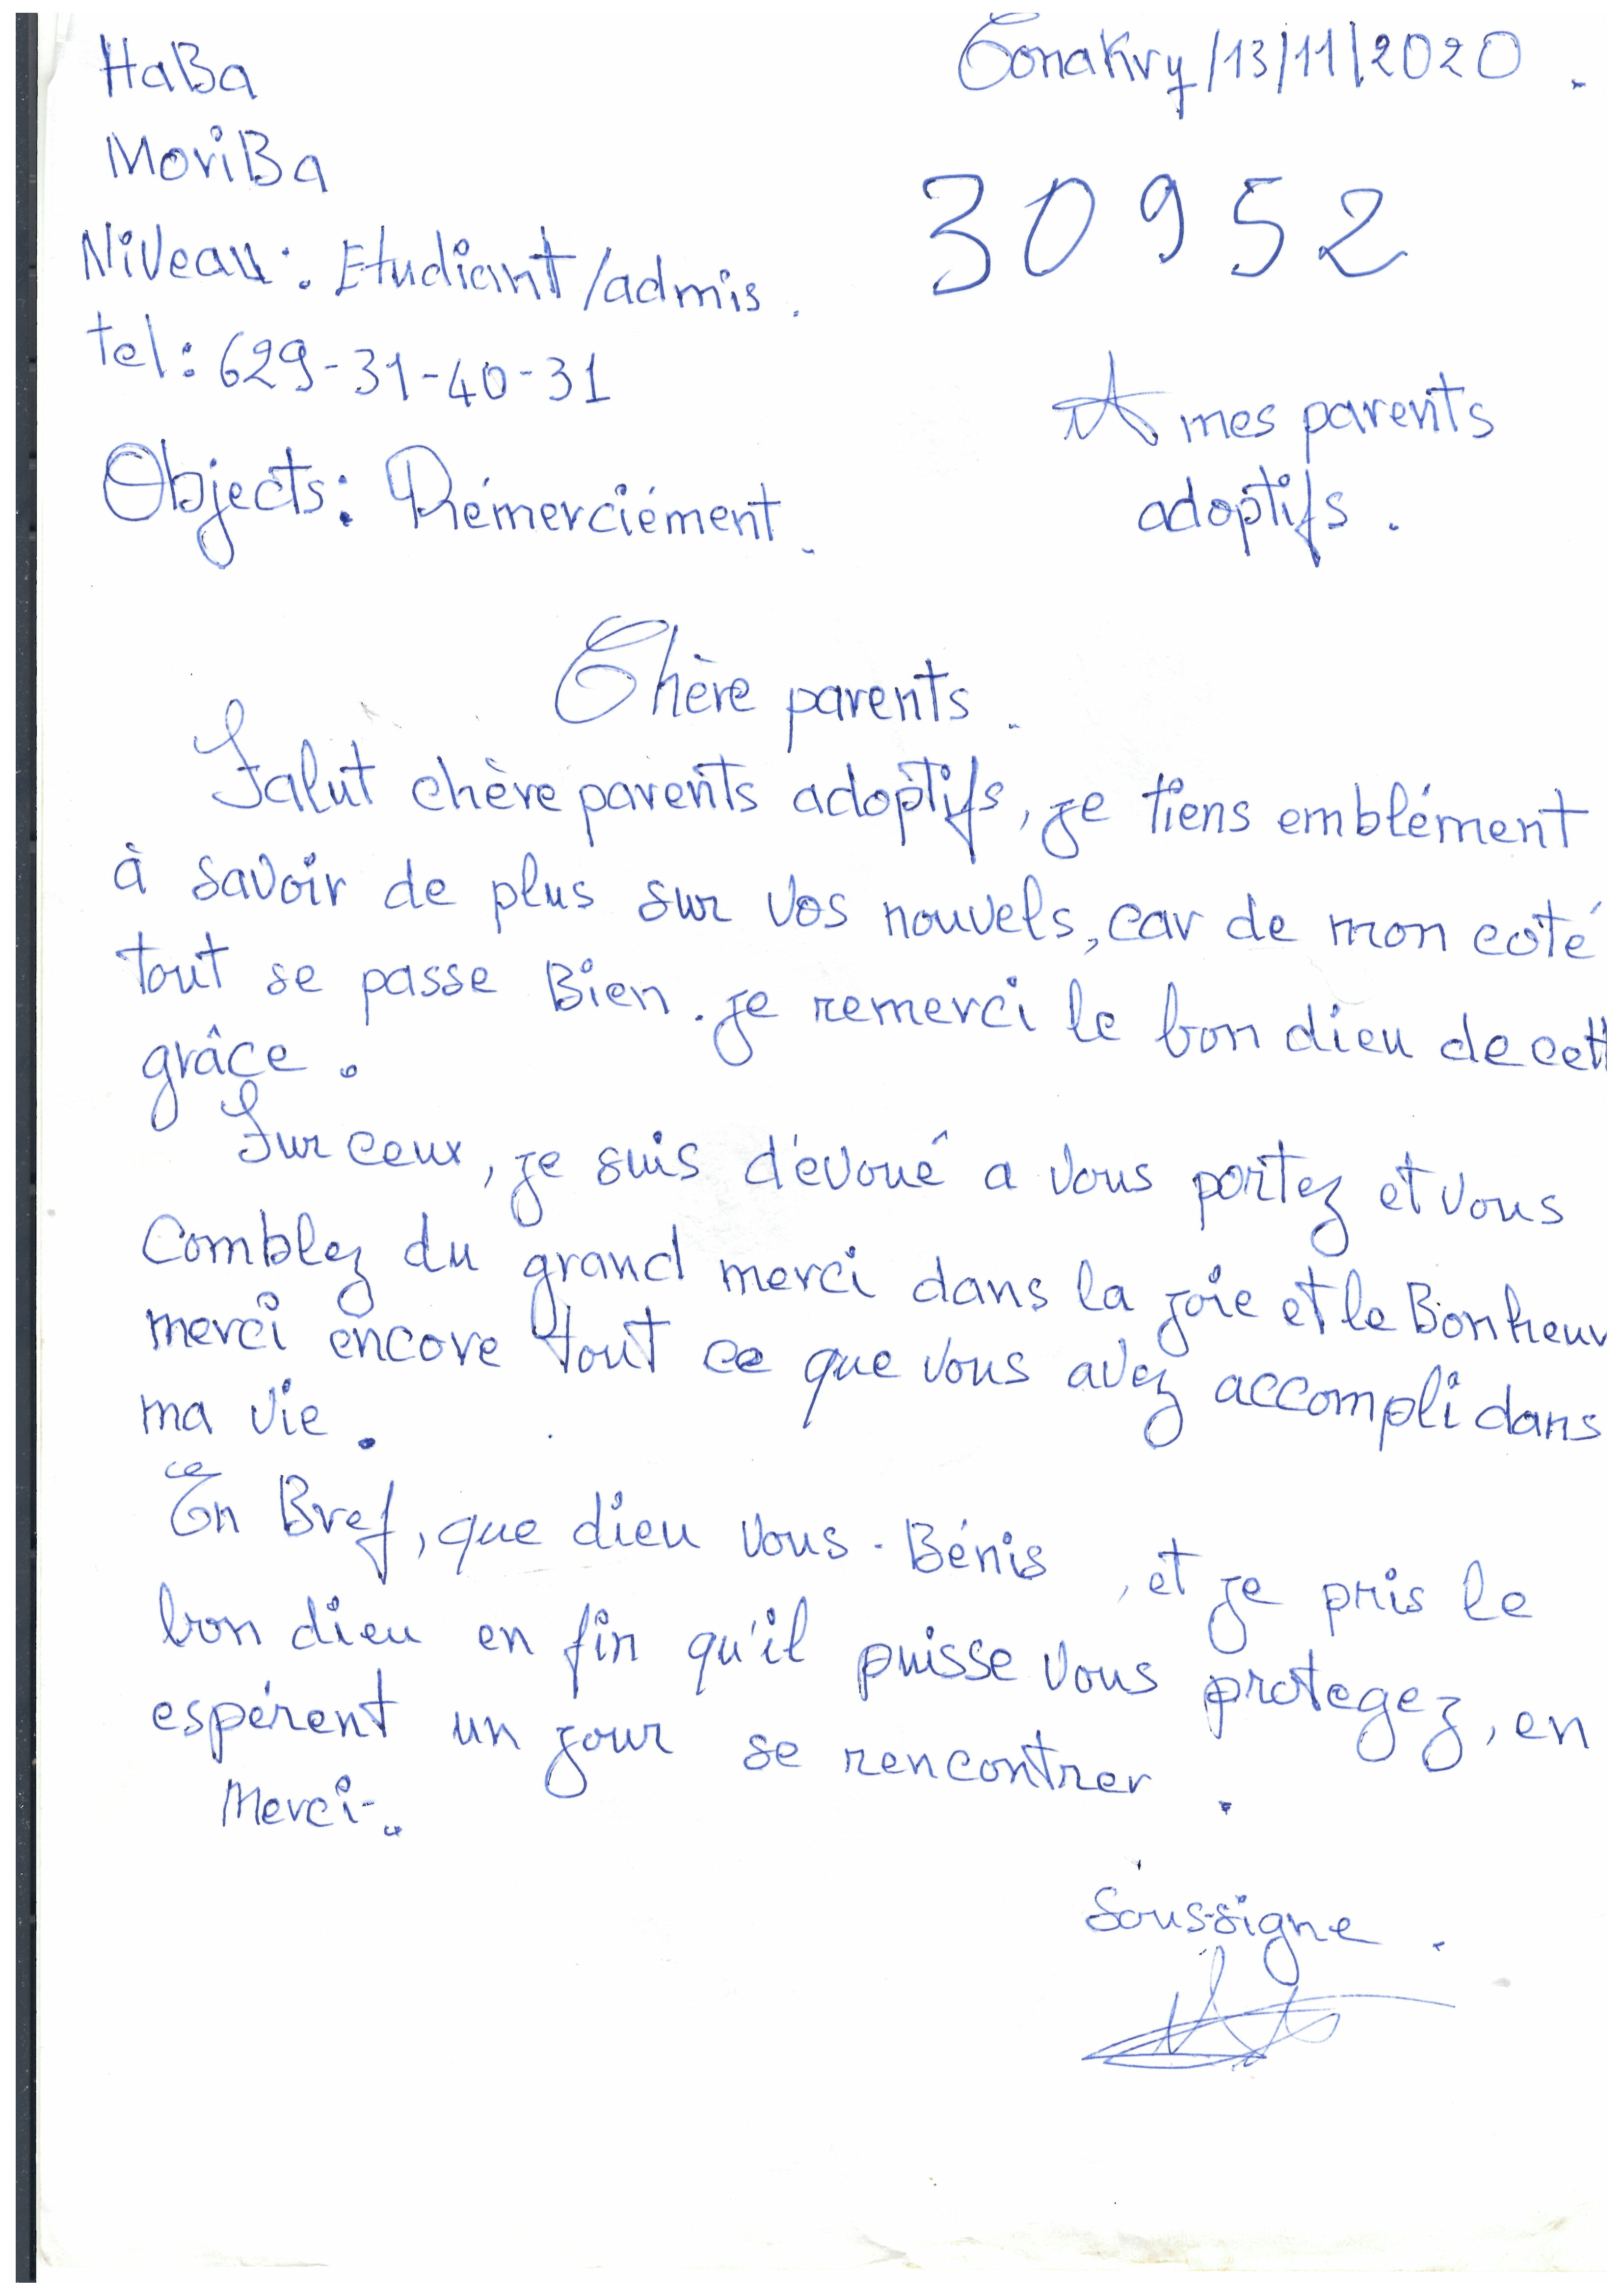 HaBa
Conakry/13/11/2020.
MoriBa
30952
Niveau: Etudiant/admis.
tel: 629-31-40-31
A mes parents
adoptifs.
Objects: Rémerciément.
Chère parents.
Salut chère parents adoptifs, je tiens emblément
à savoir de plus sur vos nouvels, car de mon coté
tout se passe Bien. je remerci le bon dieu de cett
grâce.
Sur ceux, je suis dévoué a vous portez et vous
Comblez du grand merci dans la joie et le Bonheur
merci encore tout ce que vous avez accompli dans
ma vie.
En Bref, que dieu vous Bénis, et je pris le
bon dieu en fin qu'il puisse vous protegez, en
espérent un jour se rencontrer.
Merci..
Soussigne.